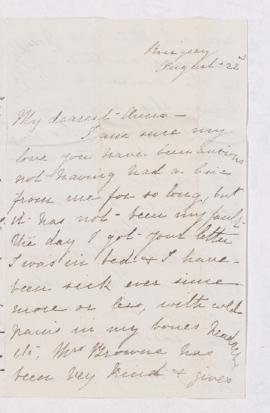 August 22nd
My dearest Anna –
I am sure my
love you have been anxious
not having had a line
from me for so long, but
it has not been my fault
The day I got your letter
I was in bed & I have
been sick ever since
more or less, with cold
pains in my bones head
etc, Mrs Browne has
been very kind & gives